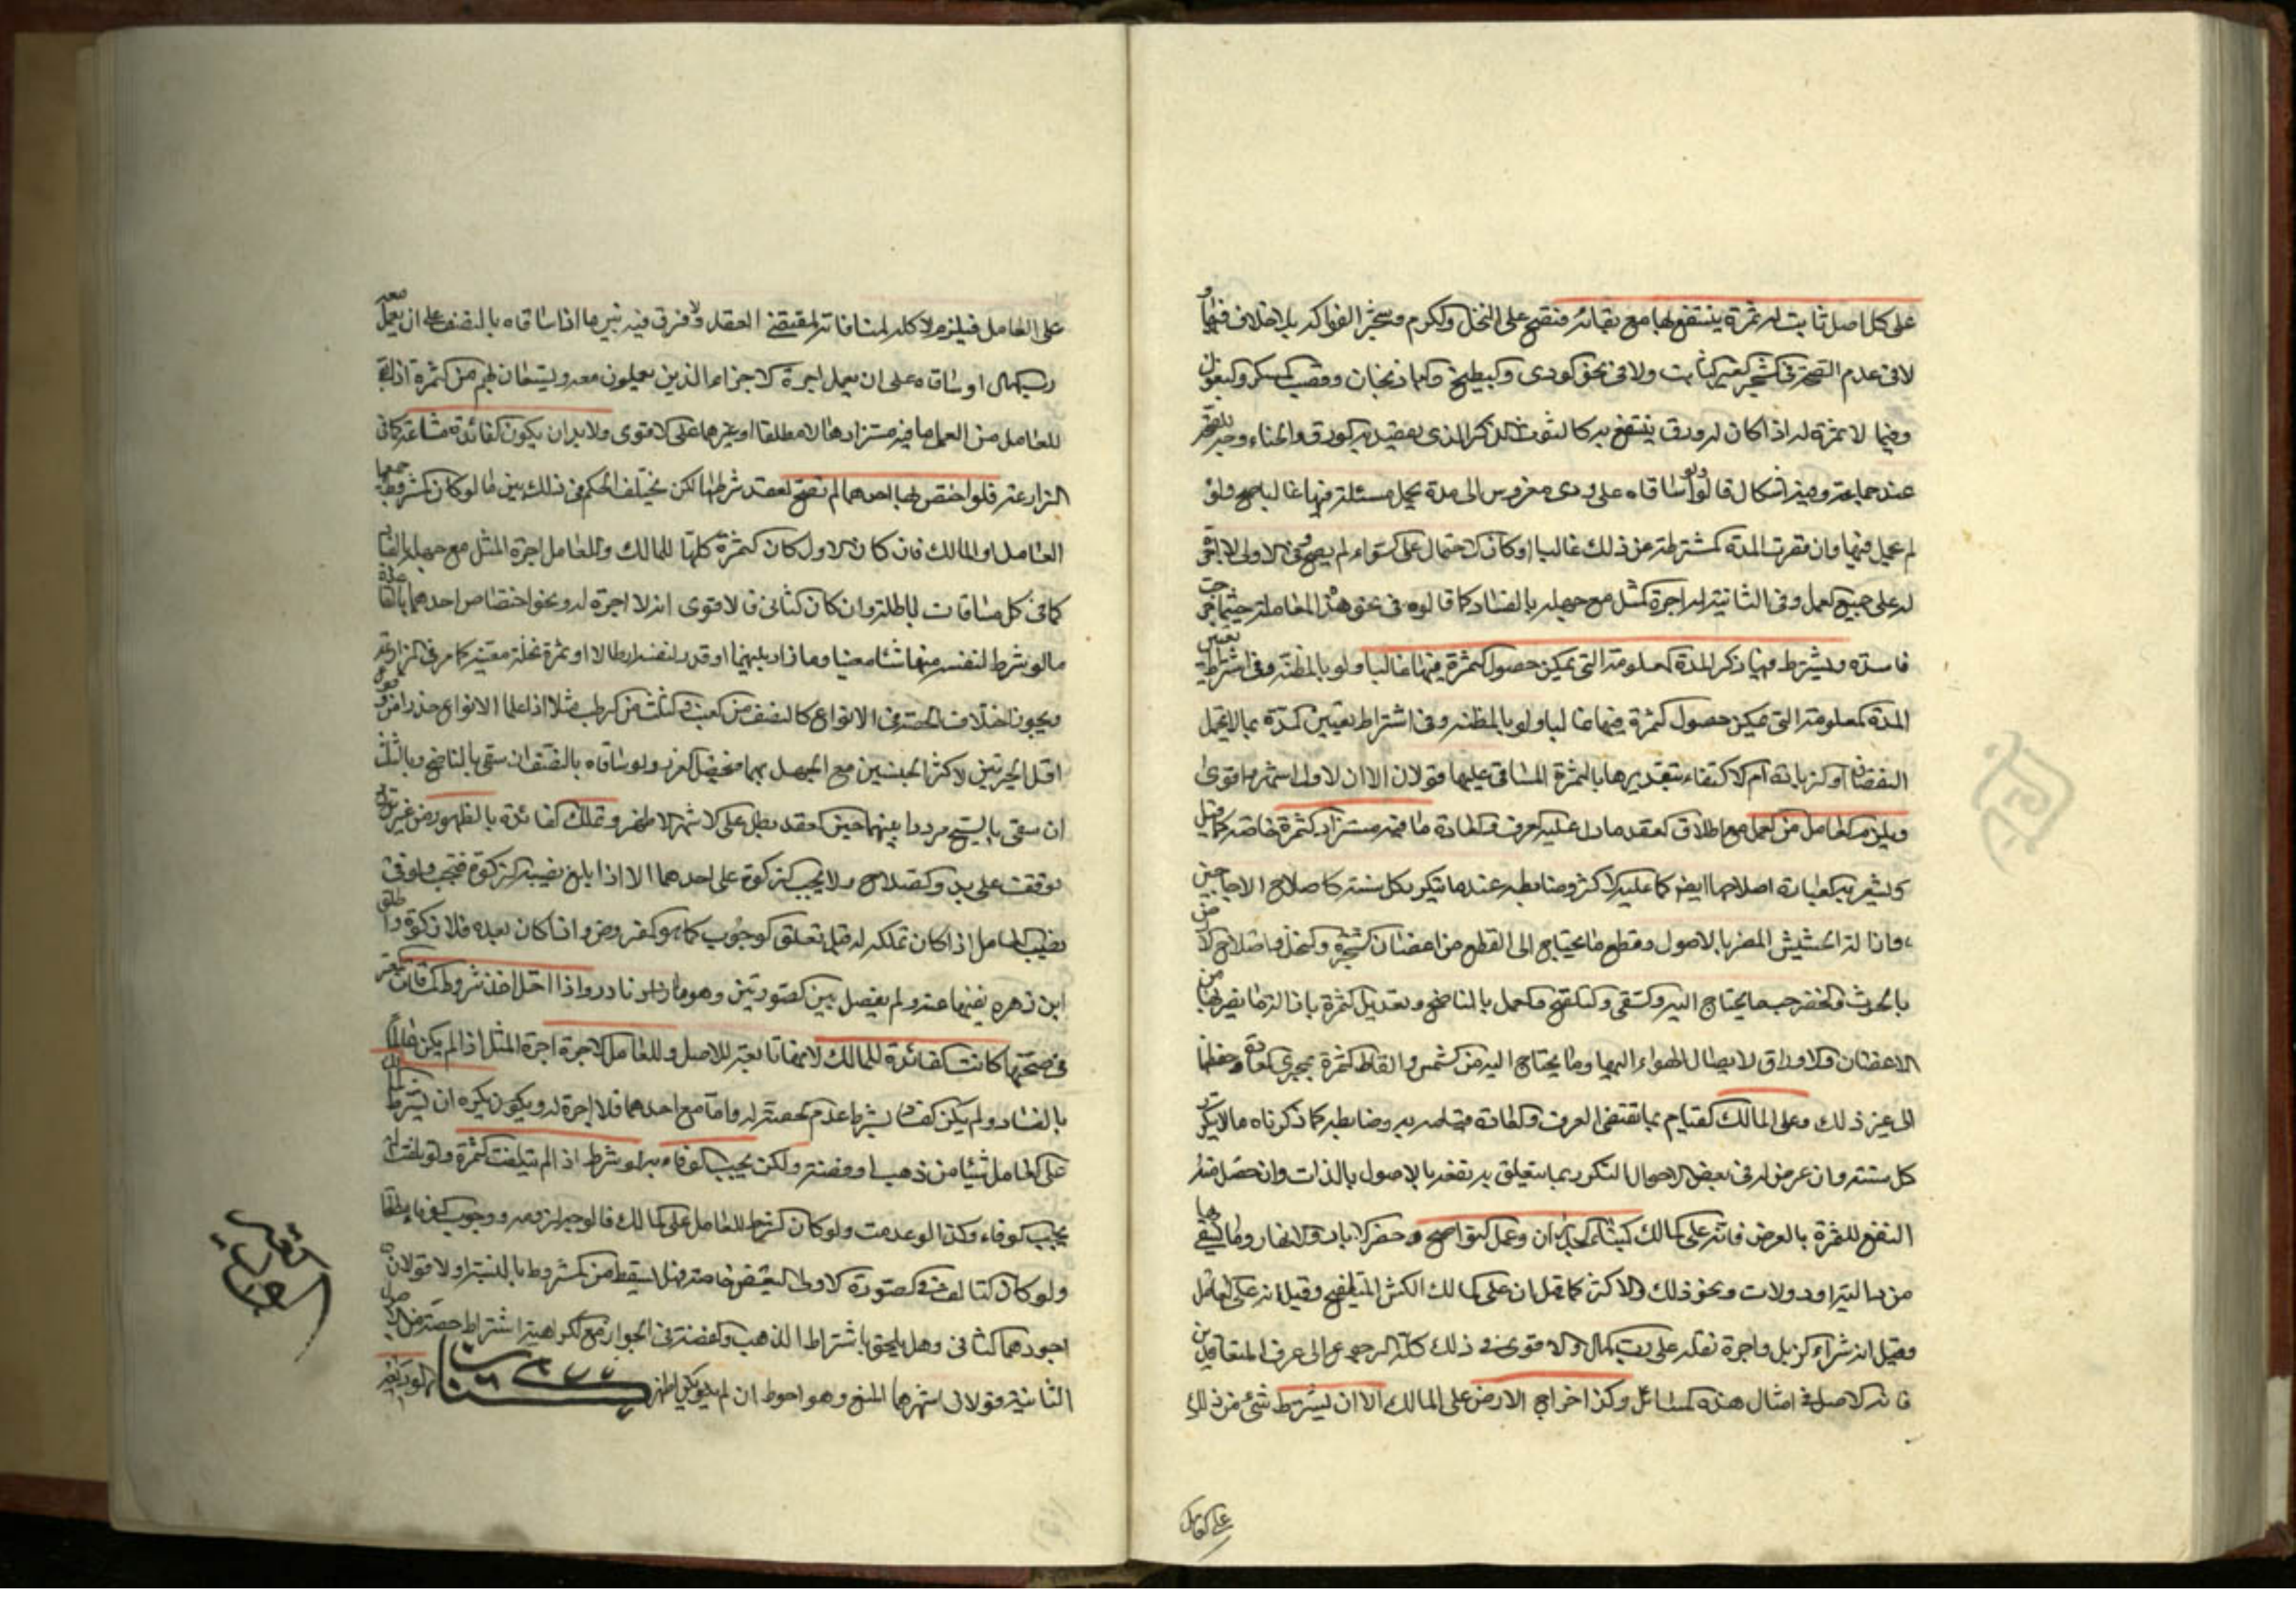 على كل اصل ثابت له ثمرة ينتفع بها مع بقائه فتصح على النخل والكرم وشجر الفواكه بلا خلاف فيها و
لا في عدم الصحة في الشجر الغير الثابت ولا في نحو الودى والبطيخ والباذنجان وقصب السكر والبقول
وفيما لا ثمرة له اذا كان له ورق ينتفع به كالتوت الذكر الذى يقصد به الورق والحناء وجه للصحة
عند جماعة وفيه اشكال قالوا ولو ساقاه على ودى مغروس الى مدة يحمل مثله فيها غالبا صح ولو
لم يحمل فيها وان قصرت المدة المشترطة من ذلك غالبا او كان الاحتمال على السواء لم يصح وفي الاولى لا اجرة
له على جميع العمل وفى الثانية له اجرة المثل مع جهله بالفساد كما قالوه في نحو هذه المعاملة حيثما جرت
فاسدة ويشترط فيها ذكر المدة المعلومة التى يمكن حصول الثمرة فيها غالبا ولو بالمظنة وفى اشتراط تعيين
المدة المعلومة التى يمكن حصول الثمرة فيها غالبا ولو بالمظنه وفى اشتراط تعيين المدة بما لا يحتمل
النقصان او الزيادة ام الاكتفاء بتقديرها بالثمرة المساقى عليها قولان الا ان الاول اشهر واقوى
ويلزم العامل من العمل مع اطلاق العقد ما دل عليه العرف والعادة ما فيه مستزاد الثمرة خاصة كما قيل
ويشعر به العبارة اصلاحها ايضا كما عليه الاكثر وضابطه عندهما يتكرر كل سنة كاصلاح الاجاجين
وازالة الحشيش المضر بالاصول وقطع ما يحتاج الى القطع من اغصان الشجرة والنخل واصلاح الارض
بالحرث والحفر حيث ما يحتاج اليه والسقى والتلقيح والعمل بالناضح وتعديل الثمرة بازالة ما يضر بها من
الاغصان والاوراق لايصال الهواء اليها وما يحتاج اليه من الشمس والقاط الثمرة بمجرى العادة وحفظها
الى غير ذلك وعلى المالك القيام بما يقتضى العرف والعادة قيامه به وضابطه كما ذكرناه ما لا يتكرر
كل سنة وان عرض له في بعض الاحوال التكرر بما يتعلق به نفعه بالاصول بالذات وان حصل منه
النفع للثمرة بالعرض فانه على المالك كبناء الجدران وعمل النواضح وحفر الابار والانهار وما يسقى بها
من دالية او دولاب ونحو ذلك والاكثر كما قيل ان على المالك الكش للتلقيح وقيل انه على العامل
وقيل انه شراء الزبل واجرة نقله على رب المال والاقوى في ذلك كله الرجوع الى عرف المتعاقدين
فانه الاصل في امثال هذه المسائل وكذا خراج الارض على المالك الا ان يشترط شئ من ذلك
على العامل
على العامل فيلزم لا كله لمنافاته لمقتضى العقد ولا فرق فيه بين ما اذا ساقاه بالنصف على ان يعمل معه
رب المال او ساقاه على ان يعمل اجرة الاجراء الذين يعملون معه ويستعان بهم من الثمرة اذا بقى
للعامل من العمل ما فيه مستزادها لا مطلقا او غيرها على الاقوى ولا بد ان يكون الفائدة مشاعة كما في
المزارعة فلو اختص بها احدهما لم تصح العقد شرطا لكن يختلف الحكم في ذلك بين ما لو كان المشروط جميعها
العامل او المالك فان كان الاول كان الثمرة كلها للمالك وللعامل اجرة المثل مع جهله بالفساد
كما في كل مساقات باطلة وان كان الثانى فالاقوى انه لا اجرة له ونحو اختصاص احدهما بالفائدة
ما لو شرط لنفسه منها شيئا معينا وما زاد بينهما او قدر لنفسه ارطالا او ثمرة نخلة معينة كما مر في المزارعة
ويجوز اختلاف الحصة في الانواع كالنصف من العنب والثلث من الرطب مثلا اذا علما الانواع حذرا من وقوع
اقل الجزئين لاكثر الجنسين مع الجهل بهما فيحصل الغرر ولو ساقاه بالنصف ان سقى بالناضح وبالثلث
ان سقى بالسيح مرددا بينهما حين العقد بطل على الاشهر الاظهر وتملك الفائدة بالظهور من غير
توقف على بدو الصلاح ولا يجب الزكوة على احدهما الا اذا بلغ نصيبه الزكوة فتجب ولو في
نصيب العامل اذا كان تملكه له قبل تعلق الوجوب كما هو المفروض واذا كان بعده فلا زكوة واطلق
ابن زهره نفيها عنه ولم يفصل بين الصورتين وهو نادر واذا اختل احد شروط المساقات المعتبرة
في صحتها كانت الفائدة للمالك لانها تابعة للاصل وللعامل الاجرة اجرة المثل اذا لم يكن عالما
بالفساد ولم يكن الفساد بشرط عدم الحصة له واما مع احدهما فلا اجرة له ويكون يكره ان يشترط رب المال
على العامل شيئا من ذهب او فضة ولكن يجب الوفاء به لو شرط اذا لم يتلف الثمرة ولو تلفت لم
يجب الوفاء وكذا لو عدمت ولو كان الشرط للعامل على المالك فالوجه لزومه ووجوب الوفاء به مطلقا
ولو كان التالف في الصورة الاولى البعض خاصة فهل يسقط من المشروط بالنسبة او لا قولان
اجودهما الثانى وهل يلحق باشتراط الذهب والفضة في الجواز مع الكراهية اشتراط حصة من الاصل
الثابتة قولان اشهرهما المنع وهو احوط ان لم يكن اظهر كتاب